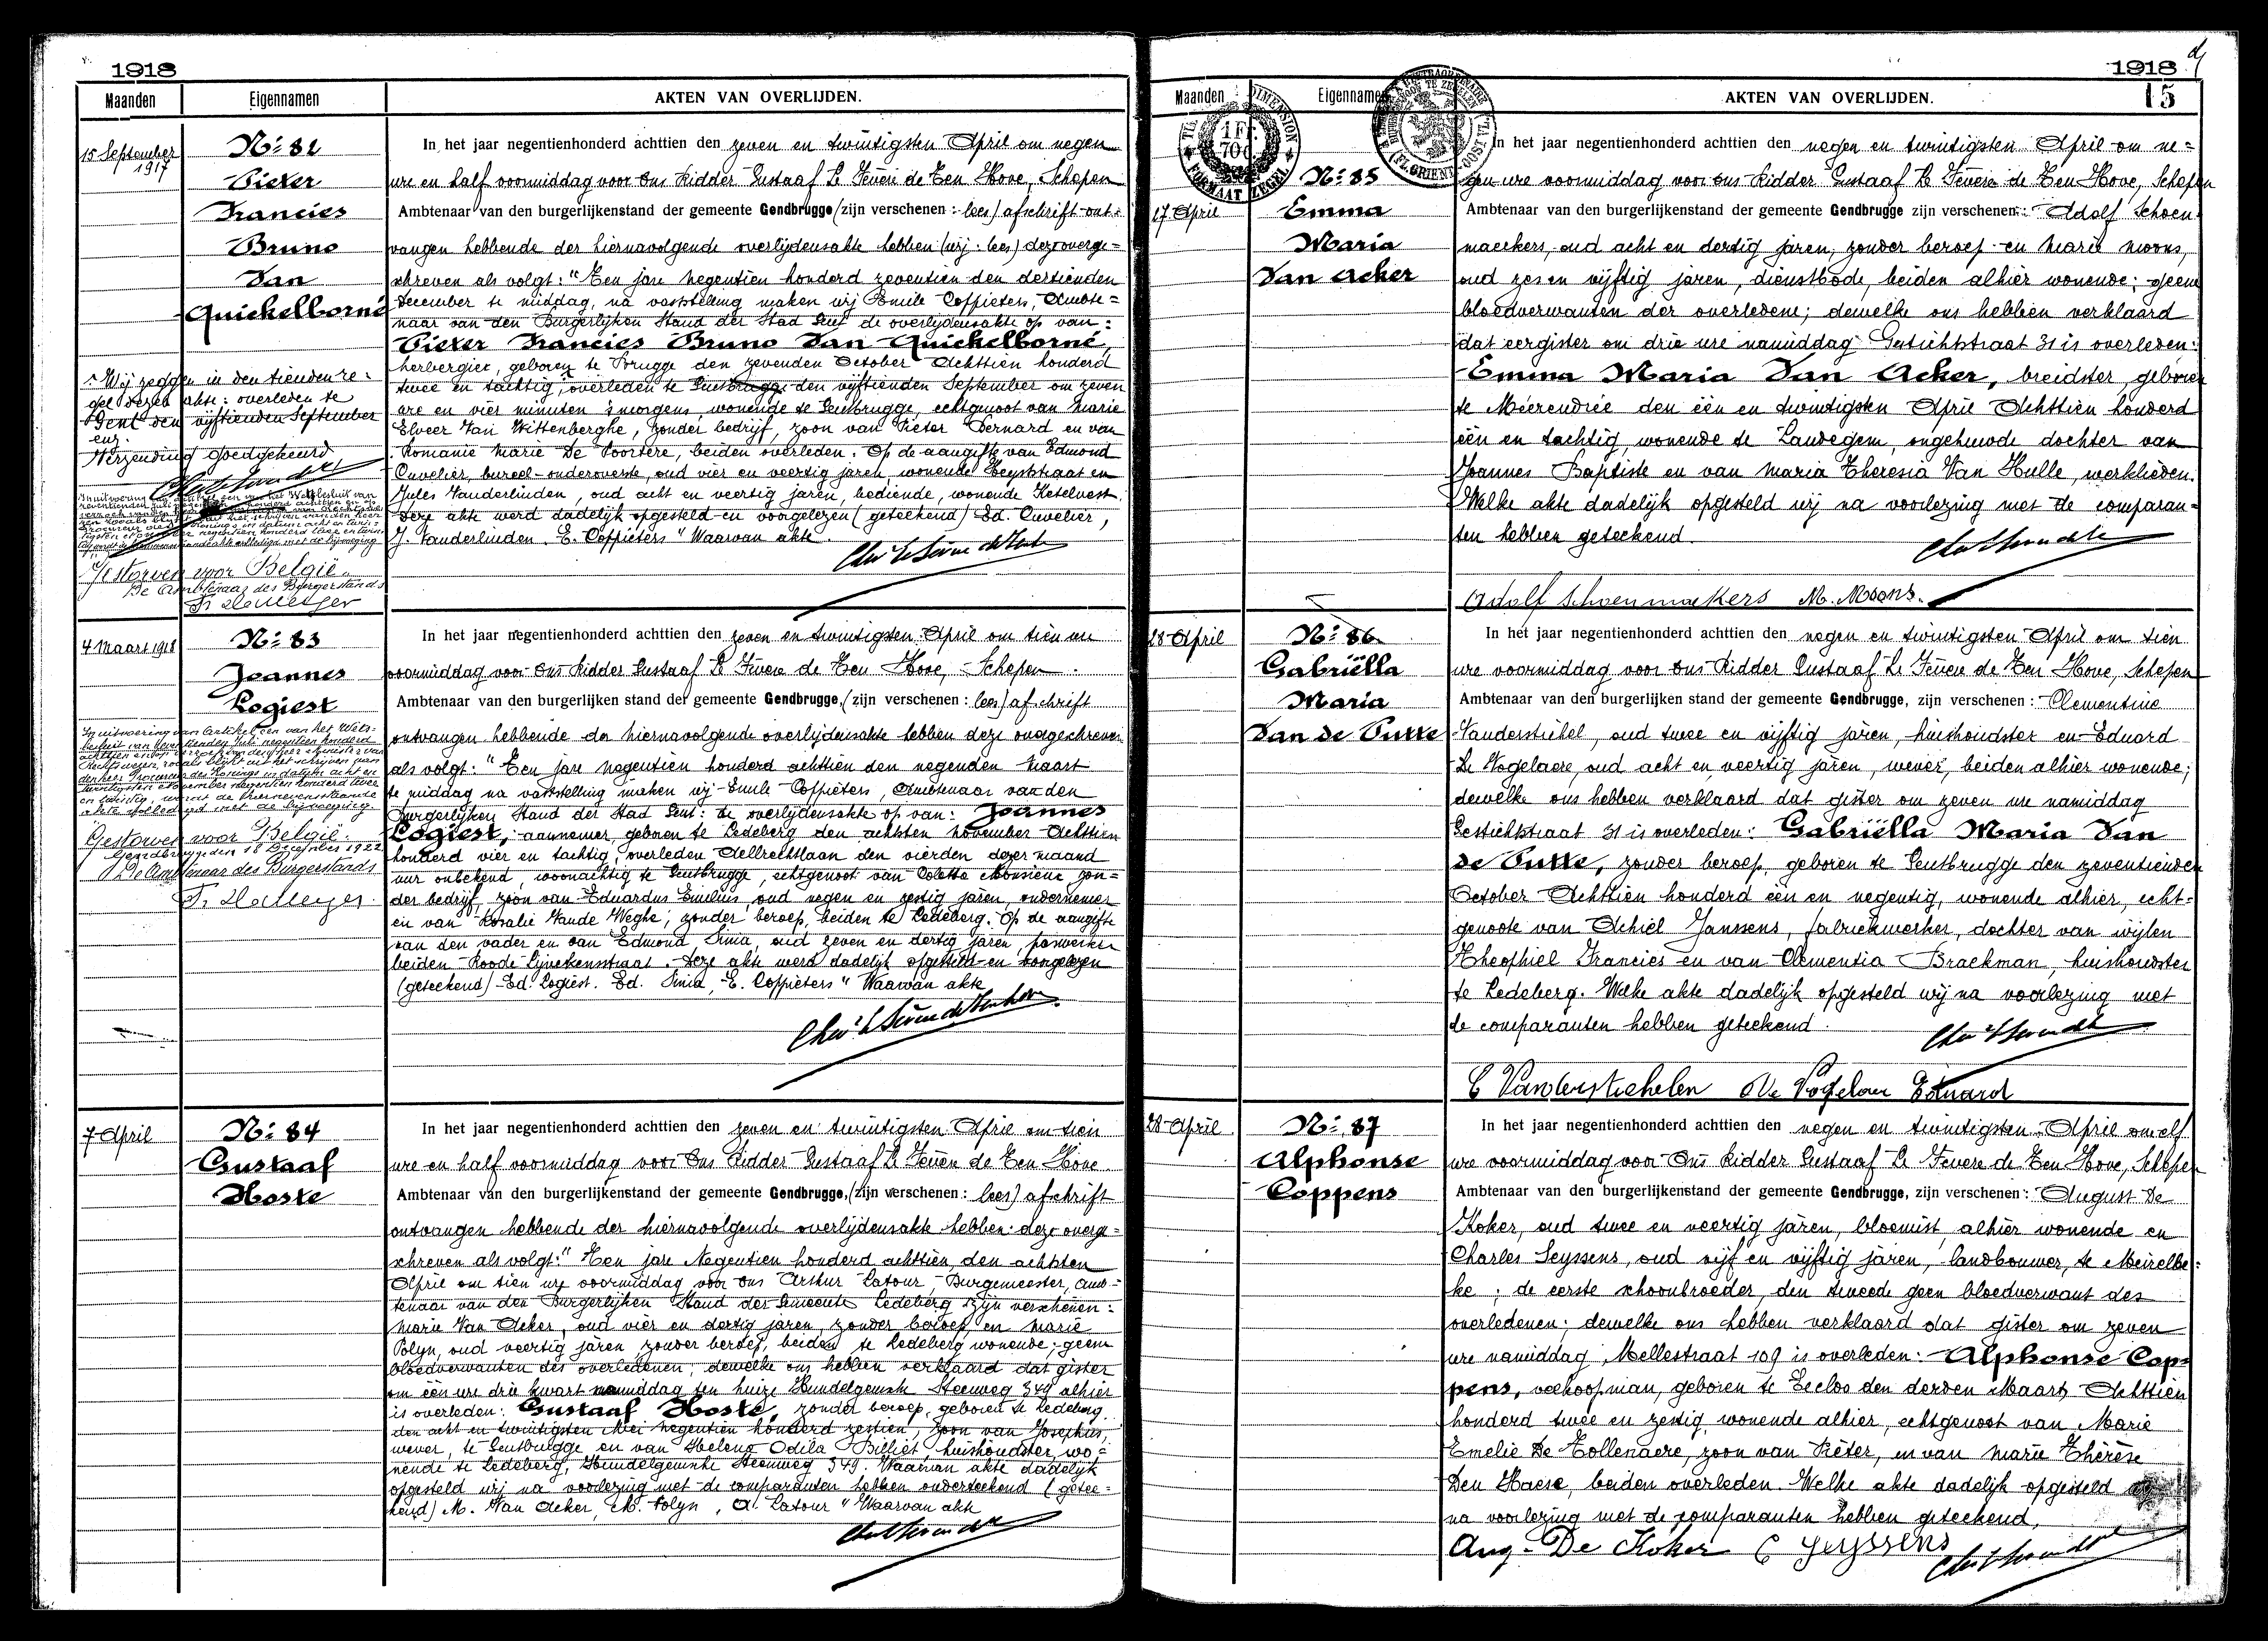 1918
Maanden Eigennamen AKTEN VAN OVERLIJDEN.
15 September
1917
N:º 82
Pieter
Francies
Bruno
Van
Quickelborne
In het jaar negentienhonderd achttien den zeven en twintigsten April om negen
ure en half voormiddag voor Ons Ridder Gustaaf Le Fevere de Ten Hove, Schepen
Ambtenaar van den burgerlijkenstand der gemeente Gendbrugge (zijn verschenen : lees) afschrift ont=
vangen hebbende der hiernavolgende overlijdensakte hebben (wij: lees) deze overge=
schreven als volgt: "Ten jare negentien honderd zeventien den dertienden
December te middag, na vaststelling maken wij Emile Coppieters, Ambte=
naar van den Burgerlijken Stand der Stad Gent de overlijdensakte op van:
Pieter Francies Bruno Van Quickelborne,
herbergier, geboren te Brugge den zevenden October Achttien honderd
twee en tachtig, overleden te Gentbrugge den vijftienden September om zeven
ure en vier minuten 's morgens, wonende te Gentbrugge, echtgenoot van Marie
Elveer Van Wittenberghe, zonder bedrijf, zoon van Pieter Bernard en van
Romanie Marie De Poortere, beiden overleden. Op de aangifte van Edmond
Cuvelier, bureel-onderoverste, oud vier en veertig jaren, wonende Heyststraat en
Jules Vanderlinden, oud acht en veertig jaren, bediende, wonende Ketelvest.
Deze akte werd dadelijk opgesteld en voorgelezen (geteekend) Ed. Cuvelier,
J. Vanderlinden. E. Coppieters" Waarvan akte.
Wij zeggen in den tienden re=
gel dezer akte: overleden te
Gent den vijftienden September
enz.
Verzending goedgekeurd
Gestorven voor België.
De Ambtenaar des Burgerstands
4 Maart 1918
N:º 83
Joannes
Logiest
In het jaar negentienhonderd achttien den zeven en twintigsten April om tien ure
voormiddag voor Ons Ridder Gustaaf Le Fevere de Ten Hove, Schepen
Ambtenaar van den burgerlijken stand der gemeente Gendbrugge, (zijn verschenen : lees) afschrift
ontvangen hebbende der hiernavolgende overlijdensakte hebben deze overgeschreven
als volgt: "Ten jare negentien honderd achttien den negenden Maart
te middag na vaststelling maken wij Emile Coppieters, Ambtenaar van den
Burgerlijken Stand der Stad Gent: de overlijdensakte op van: Joannes
Logiest, aannemer, geboren te Ledeberg den achtsten November Achttien
honderd vier en tachtig, overleden Aellrechtlaan den vierden dezer maand
uur onbekend, woonachtig te Gentbrugge, echtgenoot van Colette zon=
der bedrijf, zoon van Eduardus Emilius, oud negen en zestig jaren, ondernemer
en van Rosalie Vande Weghe, zonder beroep, beiden te Ledeberg. Op de aangifte
van den vader en van Edmond Sinia, oud zeven en dertig jaren,
beiden Roode Lijvekensstraat. Deze akte werd dadelijk opgesteld en voorgelezen
(geteekend) Ed. Logiest. Ed. Sinia, E. Coppieters" Waarvan akte
In uitvoering van artikel een van het Wets=
besluit van zeventienden Juli negentien honderd
achttien en op verzoek van den heer Minister van
Rechtswezen, zooals blijkt uit het schrijven van
den heer Procureur des Konings in datum acht en
twintigsten November negentien honderd twee
en twintig, wordt de hiernevenstaande
akte volledigd met de bijvoeging
Gestorven voor België.
Gendbrugge den 18 December 1922
De Ambtenaar des Burgerstands
7 April
N:º 84
Gustaaf
Hoste
In het jaar negentienhonderd achttien den zeven en twintigsten April om tien
ure en half voormiddag voor Ons Ridder Gustaaf Le Fevere de Ten Hove
Ambtenaar van den burgerlijkenstand der gemeente Gendbrugge, (zijn verschenen : lees) afschrift
ontvangen hebbende der hiernavolgende overlijdensakte hebben deze overge=
schreven als volgt: "Ten jare Negentien honderd achttien, den achtsten
April om tien ure voormiddag voor Ons Arthur Latour, Burgemeester, amb=
tenaar van den Burgerlijken Stand der Gemeente Ledeberg zijn verschenen:
Marie Van Acker, oud vier en dertig jaren, zonder beroep en Marie
Polyn, oud veertig jaren zonder beroep, beiden te Ledeberg wonende, geen
bloedverwanten des overledenen; dewelke ons hebben verklaard dat gister
om één ure drie kwart namiddag ten huize Hundelgemsche Steenweg 349 alhier
is overleden: Gustaaf Hoste, zonder beroep, geboren te Ledeberg
den acht en twintigsten Mei negentien honderd zestien, zoon van Josephus,
wever, te Gentbrugge en van Helena Odila Billiet, huishoudster, wo=
nende te Ledeberg, Hundelgemsche Steenweg 349. Waarvan akte dadelijk
opgesteld wij na voorlezing met de comparanten hebben onderteekend (getee=
kend) M. Van Acker, M. Polyn, A. Latour" Waarvan akte
1918
15
Maanden Eigennamen AKTEN VAN OVERLIJDEN.
1 Fr.
70c
FORMAAT ZEGEL
27 April
N:º 85
Emma
Maria
Van Acker
In het jaar negentienhonderd achttien den negen en twintigsten April om ne=
gen ure voormiddag voor ons Ridder Gustaaf Le Fevere de Ten Hove, Schepen
Ambtenaar van den burgerlijkenstand der gemeente Gendbrugge zijn verschenen: Adolf Schoen
maekers, oud acht en dertig jaren, zonder beroep en Marie Moons,
oud zes en vijftig jaren, dienstbode, beiden alhier wonende; geene
bloedverwanten der overledene; dewelke ons hebben verklaard
dat eergister om drie ure namiddag Gestichtstraat 31 is overleden:
Emma Maria Van Acker, breidster, geboren
te Meerendrée den één en twintigsten April Achttien honderd
één en tachtig, wonende te Landegem, ongehuwde dochter van
Joannes Baptiste en van Maria Theresia Van Hulle, werklieden.
Welke akte dadelijk opgesteld wij na voorlezing met de comparan=
ten hebben geteekend.
Adolf Schoenmaekers M. Moons.
28 April
N:º 86
Gabriëlla
Maria
Van de Putte
In het jaar negentienhonderd achttien den negen en twintigsten April om tien
ure voormiddag voor Ons Ridder Gustaaf Le Fevere de Ten Hove, Schepen
Ambtenaar van den burgerlijken stand der gemeente Gendbrugge, zijn verschenen : Clementine
Vanderstichel, oud twee en vijftig jaren, huishoudster en Eduard
De Vogelaere, oud acht en veertig jaren, wever, beiden alhier wonende;
dewelke ons hebben verklaard dat gister om zeven ure namiddag
Gestichtstraat 31 is overleden: Gabriëlla Maria Van
de Putte, zonder beroep, geboren te Gentbrugge den zeventienden
October Achttien honderd één en negentig, wonende alhier, echt=
genoote van Achiel Janssens, fabriekwerker, dochter van wijlen
Theophiel Francies en van Clementia Braekman, huishoudster
te Ledeberg. Welke akte dadelijk opgesteld wij na voorlezing met
de comparanten hebben geteekend.
C Vanderstichelen De Vogelaer Eduard
28 April
N:º 87
Alphonse
Coppens
In het jaar negentienhonderd achttien den negen en twintigsten April om elf
ure voormiddag voor Ons Ridder Gustaaf Le Fevere de Ten Hove, Schepen
Ambtenaar van den burgerlijkenstand der gemeente Gendbrugge, zijn verschenen : August De
Koker, oud twee en veertig jaren, bloemist, alhier wonende en
Charles Seyssens, oud vijf en vijftig jaren, landbouwer, te Meirelbe=
ke; de eerste schoonbroeder, den tweede geen bloedverwant des
overledenen; dewelke ons hebben verklaard dat gister om zeven
ure namiddag, Mellestraat 109 is overleden: Alphonse Cop=
pens, veekoopman, geboren te Eecloo den derden Maart Achttien
honderd twee en zestig, wonende alhier, echtgenoot van Marie
Emelie De Tollenaere, zoon van Pieter, en van Marie Thérèse
Den Haese, beiden overleden. Welke akte dadelijk opgesteld wij
na voorlezing met de comparanten hebben geteekend,
Aug. De Koker C Seyssens